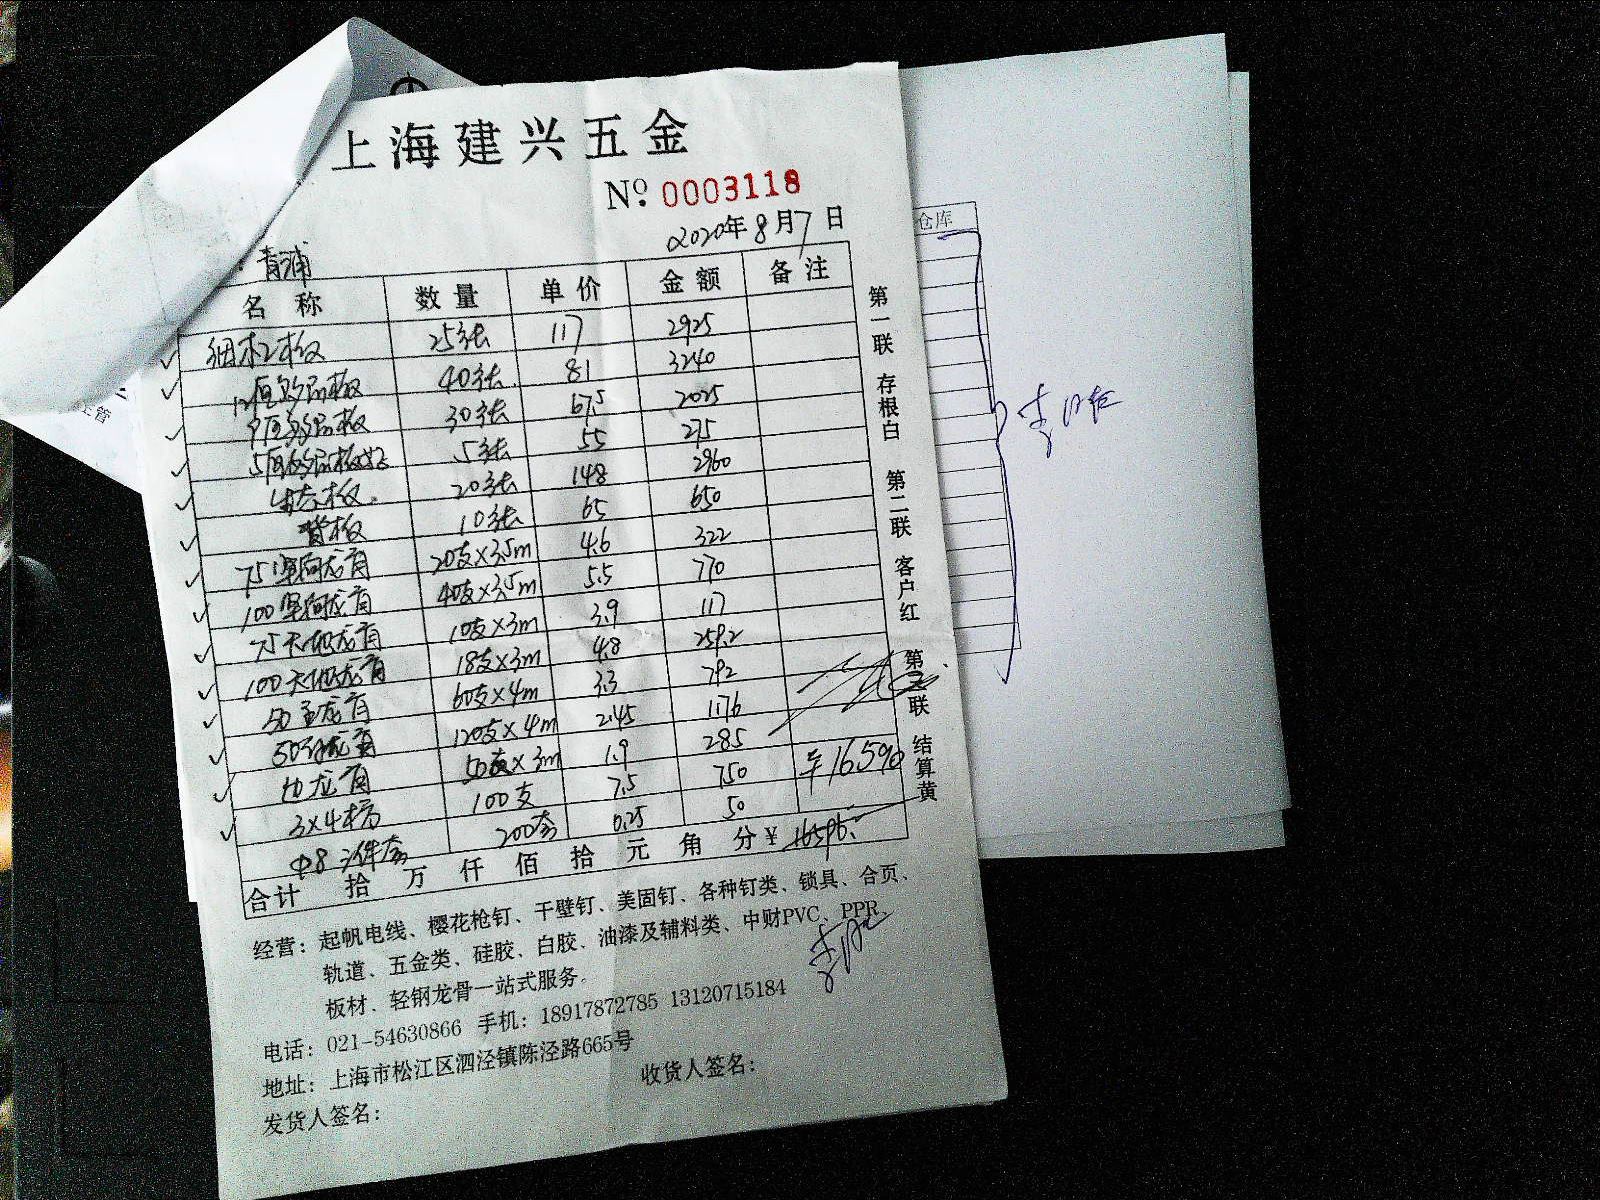 上海建兴五金
No. 0003118
2020年8月7日
青浦
名称 数量 单价 金额 备注
细木工板 25张 117 2925
12厘多层板 40张 81 3240
9厘多层板 30张 67.5 2025
5厘多层板 5张 55 275
生态板 20张 148 2960
背板 10张 65 650
75竖向龙骨 20支×3.5m 4.6 322
100竖向龙骨 40支×3.5m 5.5 770
75天地龙骨 10支×3m 3.9 117
100天地龙骨 18支×3m 4.8 259.2
50主龙骨 60支×4m 3.3 792
50付龙骨 120支×4m 2.45 1176
边龙骨 50支×3m 1.9 285
3×4木方 100支 7.5 750
Φ8三件套 200套 0.25 50
¥16590
合计 拾 万 仟 佰 拾 元 角 分 ¥ 16596.
第一联 存根白 第二联 客户红 第三联 结算黄
经营：起帆电线、樱花枪钉、干壁钉、美固钉、各种钉类、锁具、合页、
轨道、五金类、硅胶、白胶、油漆及辅料类、中财PVC、PPR、
板材、轻钢龙骨一站式服务。
电话：021-54630866 手机：18917872785 13120715184
地址：上海市松江区泗泾镇陈泾路665号
发货人签名： 收货人签名：
仓库